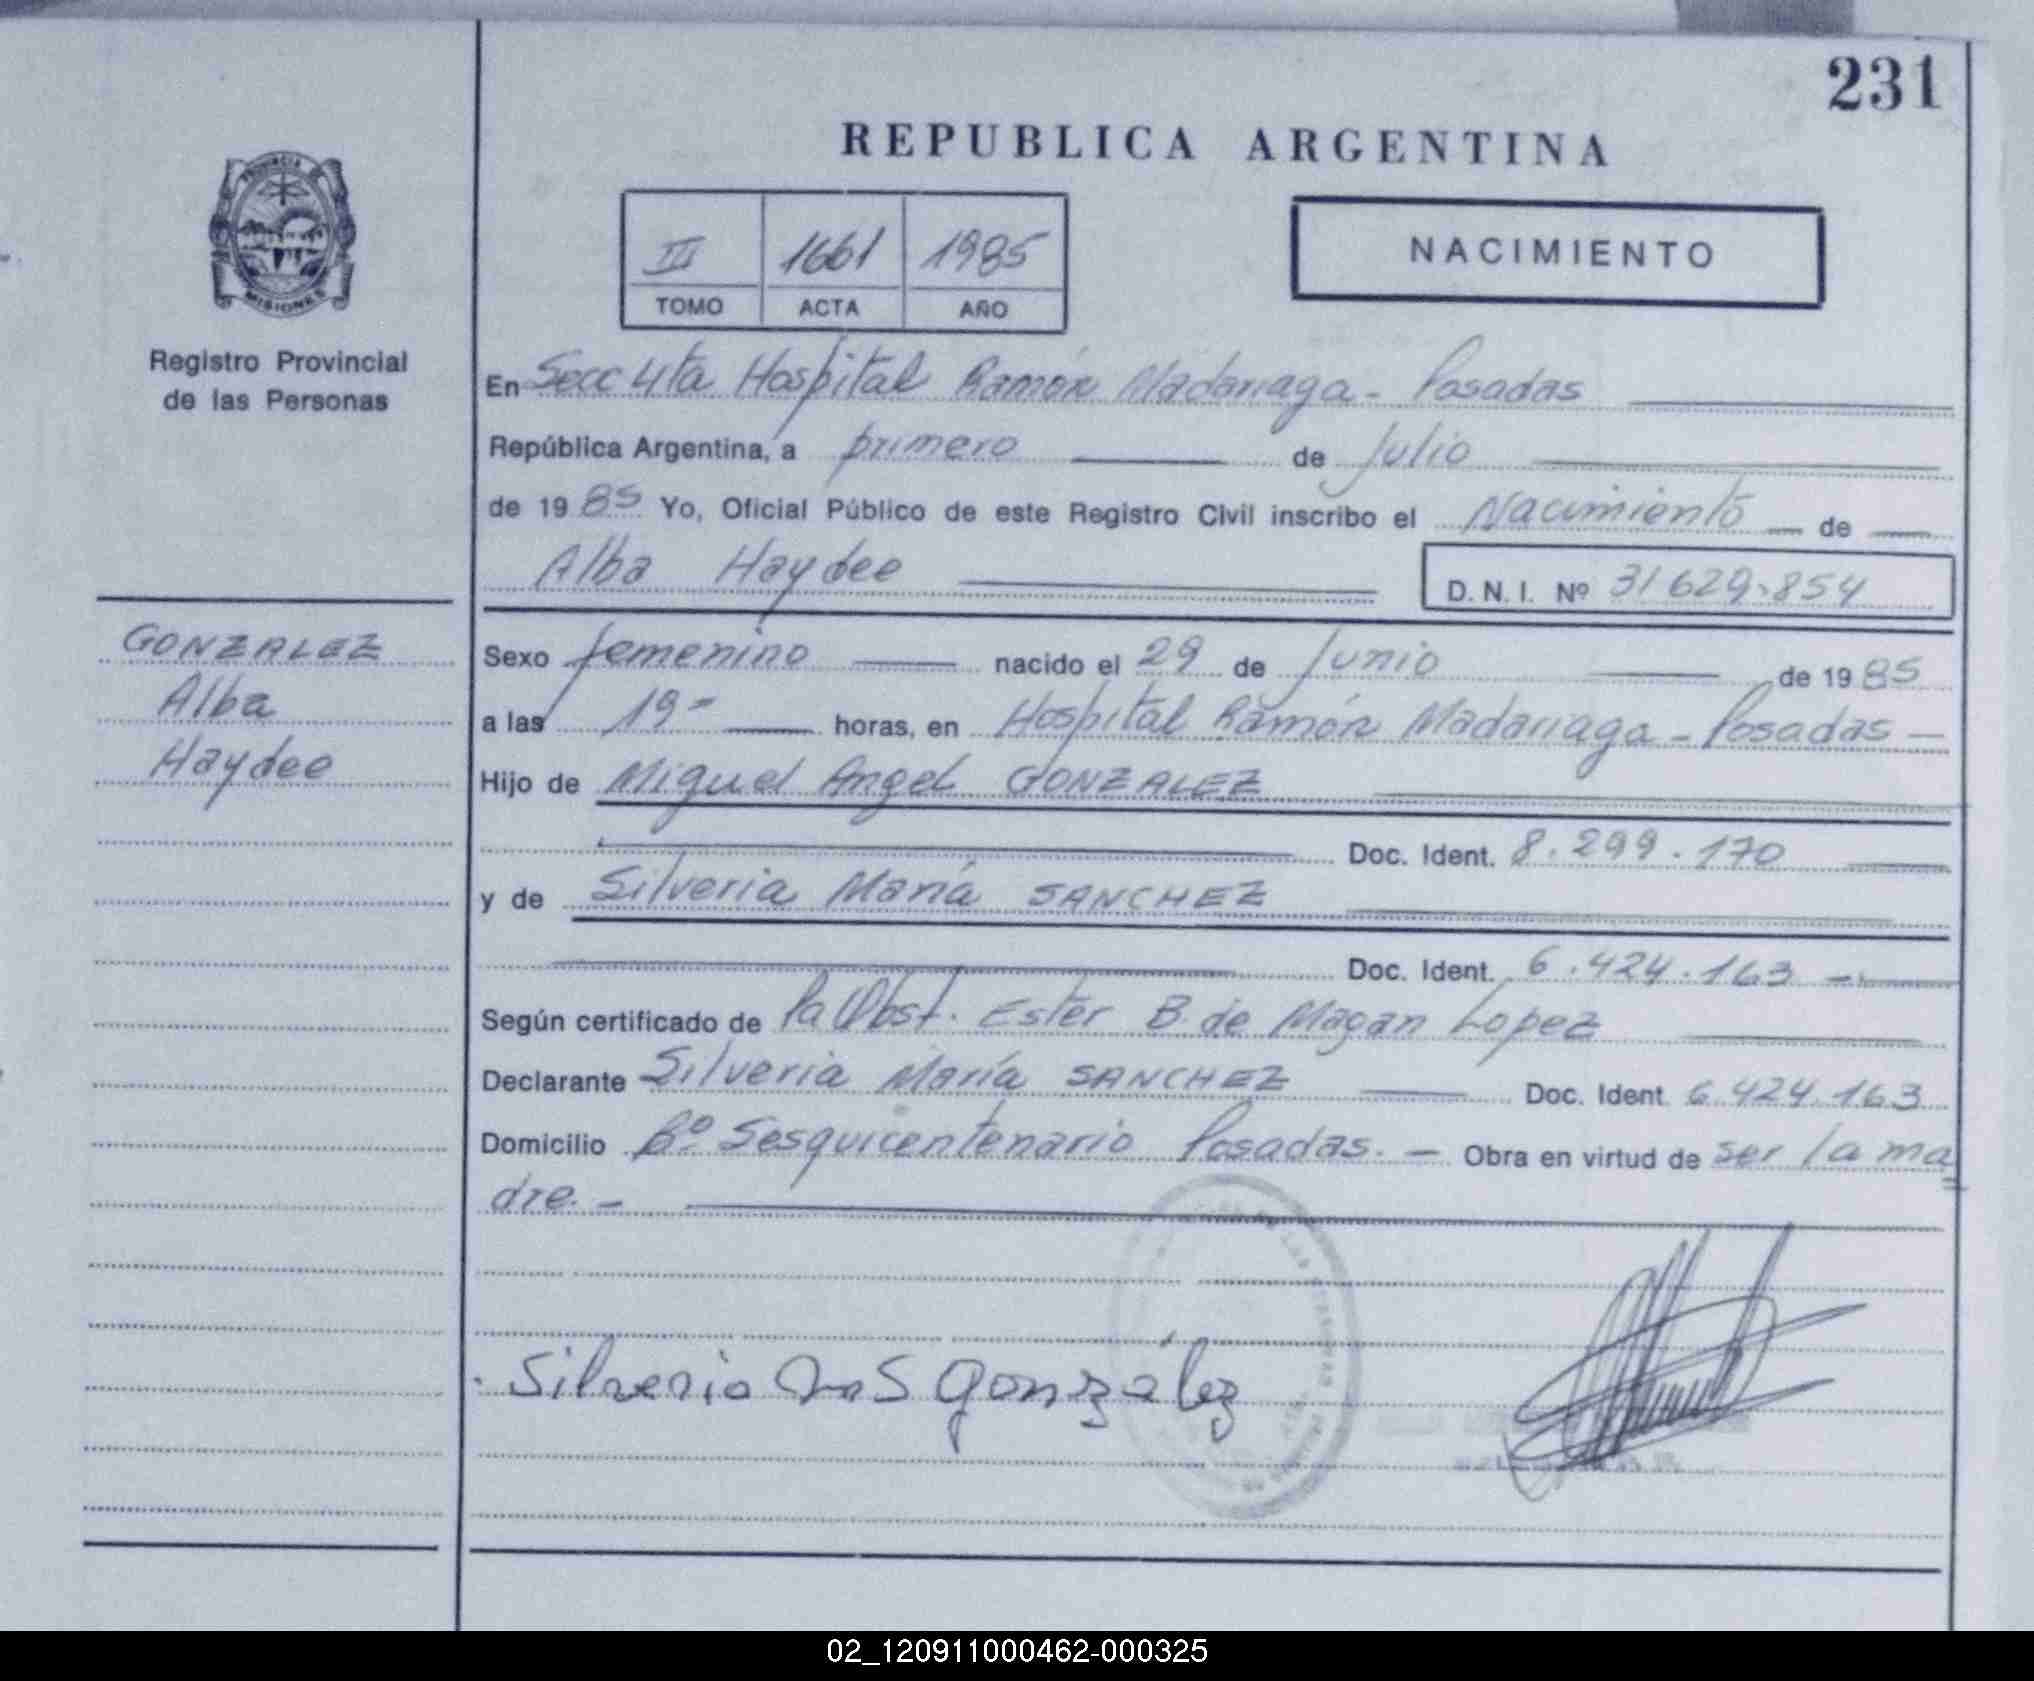 231
REPUBLICA ARGENTINA
PROVINCIA DE
MISIONES
Registro Provincial
de las Personas
III 1661 1985
TOMO ACTA AÑO
NACIMIENTO
En Secc 4ta Hospital Ramón Madariaga - Posadas
República Argentina, a primero de Julio
de 1985 Yo, Oficial Público de este Registro Civil inscribo el Nacimiento de
Alba Haydee D. N. I. Nº 31629.854
GONZALEZ
Alba
Haydee
Sexo femenino nacido el 29 de Junio de 1985
a las 19- horas, en Hospital Ramón Madariaga - Posadas -
Hijo de Miguel Angel GONZALEZ
Doc. Ident. 8.299.170
y de Silveria María SANCHEZ
Doc. Ident. 6.424.163 -
Según certificado de la Obst. Ester B. de Magan Lopez
Declarante Silveria María SANCHEZ Doc. Ident. 6.424.163
Domicilio Bº Sesquicentenario Posadas. - Obra en virtud de ser la ma
dre. -
Silveria S González
02_120911000462-000325